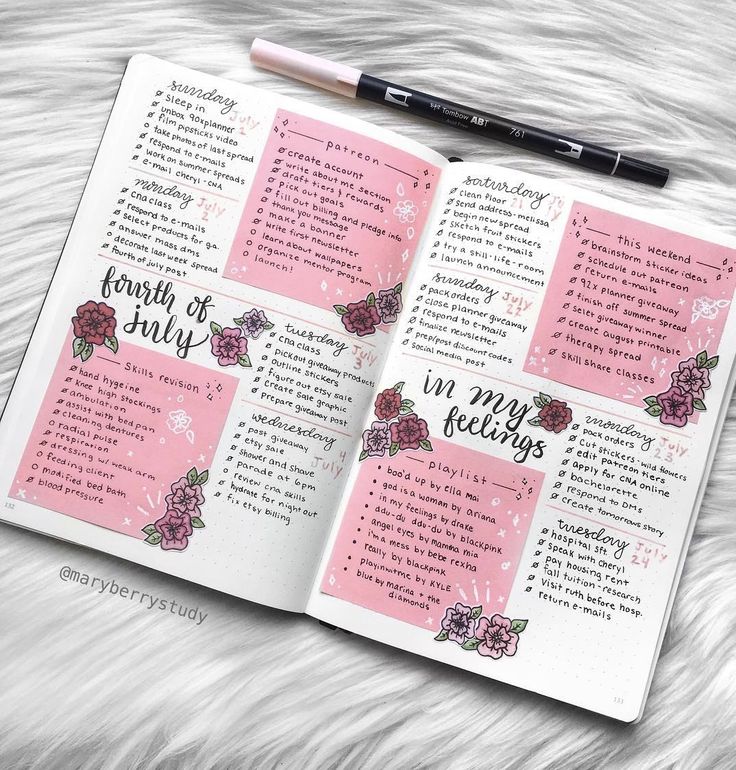 Tombow ABT
761
sunday
July 1
sleep in
unbox 92xplanner
film pipsticks video
take photos of last spread
respond to e-mails
work on summer spreads
e-mail cheryl - CNA
monday
July 2
cna class
respond to e-mails
select products for ga.
answer mass dms
decorate last week spread
fourth of july post
patreon
create account
write about me section
draft tiers & rewards
pick out goals
fill out billing and pledge info
thank you message
make a banner
write first newsletter
learn about wallpapers
organize mentor program
launch!
fourth of
july
skills revision
hand hygeine
knee high stockings
ambulation
assist with bed pan
cleaning dentures
radial pulse
respiration
dressing w/ weak arm
feeding client
modified bed bath
blood pressure
tuesday
July 3
cna class
pickout giveaway products
outline stickers
figure out etsy sale
create sale graphic
prepare giveaway post
wednesday
July 4
post giveaway
etsy sale
shower and shave
parade at 6pm
review cna skills
hydrate for night out
fix etsy billing
132
saturday
July 21
clean floor
send address - melissa
begin new spread
sketch fruit stickers
respond to e-mails
try a still-life-room
launch announcement
sunday
July 22
pack orders
close planner giveaway
respond to e-mails
finalize newsletter
prep/post discount codes
social media post
this weekend
brainstorm sticker ideas
schedule out patreon
return e-mails
92x planner giveaway
finish off summer spread
selct giveaway winner
create august printable
therapy spread
skill share classes
in my
feelings
playlist
boo'd up by ella mai
god is a woman by ariana
in my feelings by drake
ddu-du ddu-du by blackpink
angel eyes by mamma mia
i'm a mess by bebe rexha
really by blackpink
playinwitme by KYLE
blue by marina + the
diamonds
monday
July 23
pack orders
cut stickers - wild flowers
edit patreon tiers
apply for CNA online
bachelorette
respond to DMs
create tomorraws story
tuesday
July 24
hospital sft.
speak with cheryl
pay housing rent
fall tuition - research
visit ruth before hosp.
return e-mails
@maryberrystudy